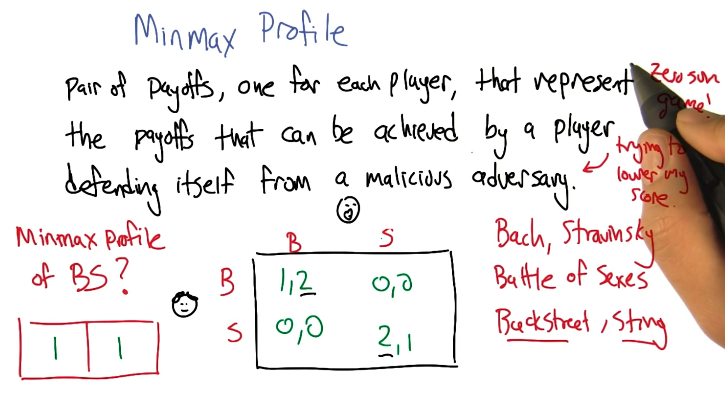 Minmax Profile
Pair of Payoffs, one for each player, that represent
the payoffs that can be achieved by a player
defending itself from a malicious adversary.
zero sum
game!
trying to
lower my
score.
Minmax profile
of BS?
1 1
B S
B 1,2 0,0
S 0,0 2,1
Bach, Stravinsky
Battle of Sexes
Backstreet, Sting